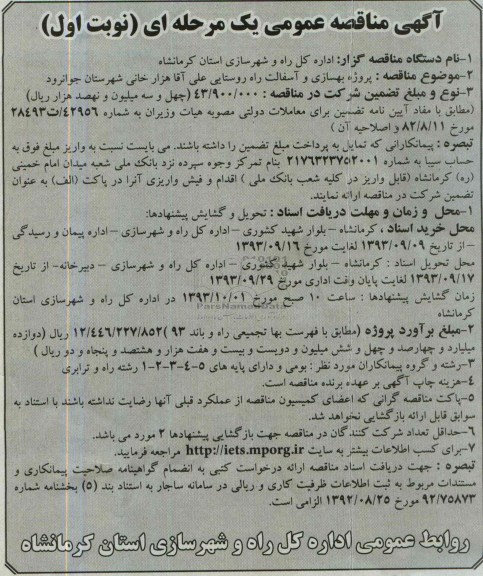 آگهی مناقصه عمومی یک مرحله ای (نوبت اول)
۱-نام دستگاه مناقصه گزار: اداره کل راه و شهرسازی استان کرمانشاه
۲-موضوع مناقصه : پروژه بهسازی و آسفالت راه روستایی علی آقا هزار خانی شهرستان جوانرود
۳-نوع و مبلغ تضمین شرکت در مناقصه : ۴۳/۹۰۰/۰۰۰ (چهل و سه میلیون و نهصد هزار ریال)
(مطابق با مفاد آیین نامه تضمین برای معاملات دولتی مصوبه هیات وزیران به شماره ۴۲۹۵۶/ت۲۸۴۹۳
مورخ ۸۲/۸/۱۱ و اصلاحیه آن )
تبصره : پیمانکارانی که تمایل به پرداخت مبلغ تضمین را داشته باشند، می بایست نسبت به واریز مبلغ فوق به
حساب سیبا به شماره ۲۱۷۶۳۲۳۷۵۲۰۰۱ بنام تمرکز وجوه سپرده نزد بانک ملی شعبه میدان امام خمینی
(ره) کرمانشاه (قابل واریز در کلیه شعب بانک ملی ) اقدام و فیش واریزی آنرا در پاکت (الف) به عنوان
تضمین شرکت در مناقصه ارائه نمایند.
۱-محل و زمان و مهلت دریافت اسناد : تحویل و گشایش پیشنهادها:
محل خرید اسناد ، کرمانشاه – بلوار شهید کشوری – اداره کل راه و شهرسازی – اداره پیمان و رسیدگی
– از تاریخ ۱۳۹۳/۰۹/۰۹ لغایت مورخ ۱۳۹۳/۰۹/۱۶
محل تحویل اسناد : کرمانشاه – بلوار شهید کشوری – اداره کل راه و شهرسازی – دبیرخانه- از تاریخ
۱۳۹۳/۰۹/۱۷ لغایت پایان وقت اداری مورخ ۱۳۹۳/۰۹/۲۹
زمان گشایش پیشنهادها : ساعت ۱۰ صبح مورخ ۱۳۹۳/۱۰/۰۱ در اداره کل راه و شهرسازی استان
کرمانشاه
۲-مبلغ برآورد پروژه (مطابق با فهرست بها تجمیعی راه و باند ۹۳ ) ۱۲/۴۴۶/۲۲۷/۸۵۲ ریال (دوازده
میلیارد و چهارصد و چهل و شش میلیون و دویست و بیست و هفت هزار و هشتصد و پنجاه و دو ریال )
۳-رشته و گروه پیمانکاران مورد نظر : بومی و دارای پایه های ۵-۴-۳-۲-۱ رشته راه و ترابری
۴-هزینه چاپ آگهی بر عهده برنده مناقصه است.
۵-پاکت مناقصه گرانی که اعضای کمیسیون مناقصه از عملکرد قبلی آنها رضایت نداشته باشند با استناد به
سوابق قابل ارائه بازگشایی نخواهد شد.
۶-حداقل تعداد شرکت کنندگان در مناقصه جهت بازگشایی پیشنهادها ۲ مورد می باشد.
۷-برای کسب اطلاعات بیشتر به سایت http://iets.mporg.ir مراجعه فرمایید.
تبصره : جهت دریافت اسناد مناقصه ارائه درخواست کتبی به انضمام گواهینامه صلاحیت پیمانکاری و
مستندات مربوط به ثبت اطلاعات ظرفیت کاری و ریالی در سامانه ساجار به استناد بند (۵) بخشنامه شماره
۹۲/۷۵۸۷۳ مورخ ۱۳۹۲/۰۸/۲۵ الزامی است.
روابط عمومی اداره کل راه و شهرسازی استان کرمانشاه